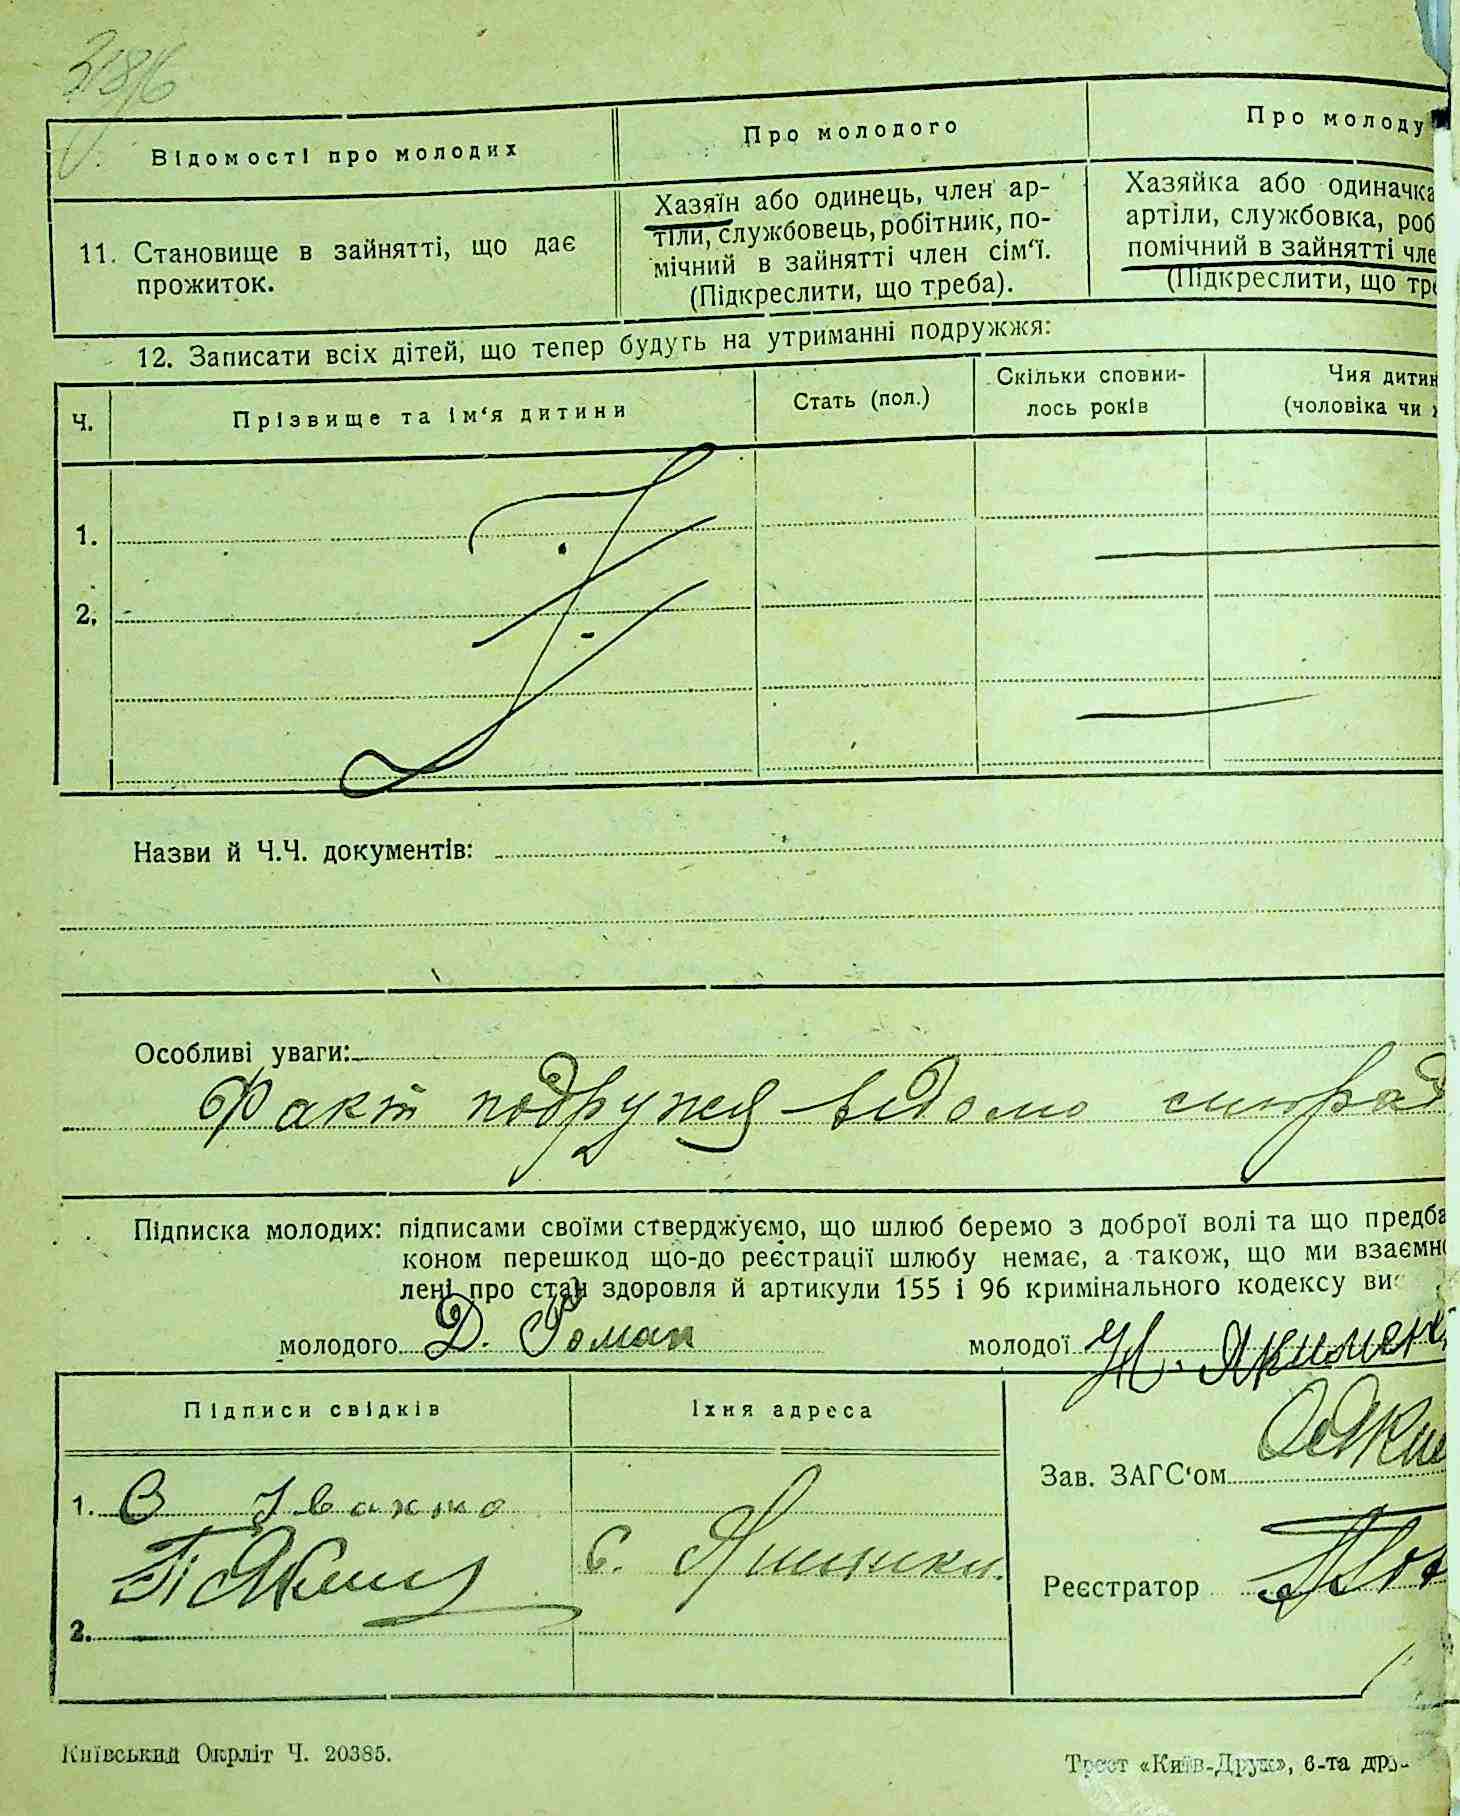 Відомості про молодих
Про молодого
Про молоду
11. Становище в зайнятті, що дає
прожиток.
Хазяїн або одинець, член ар-
тіли, службовець, робітник, по-
мічний в зайнятті член сім‘ї.
(Підкреслити, що треба).
Хазяйка або одиначка
артіли, службовка, роб
помічний в зайнятті чле
(Підкреслити, що тре
12. Записати всіх дітей, що тепер будуть на утриманні подружжя:
Ч.
Прізвище та ім‘я дитини
Стать (пол.)
Скільки сповни-
лось років
Чия дитин
(чоловіка чи
1.
2.
Назви й Ч.Ч. документів:
Особливі уваги:
Факт подружжя відомо
Підписка молодих: підписами своїми стверджуємо, що шлюб беремо з доброї волі та що предба
коном перешкод що-до реєстрації шлюбу немає, а також, що ми взаємно
лені про стан здоровля й артикули 155 і 96 кримінального кодексу ви
молодого Д. Роман
молодої Н. Якимен
Підписи свідків
Їхня адреса
1. О Іванко
с.
2.
Зав. ЗАГС‘ом
Реєстратор
Київський Окрліт Ч. 20385.
Трест «Київ-Друк», 6-та дру